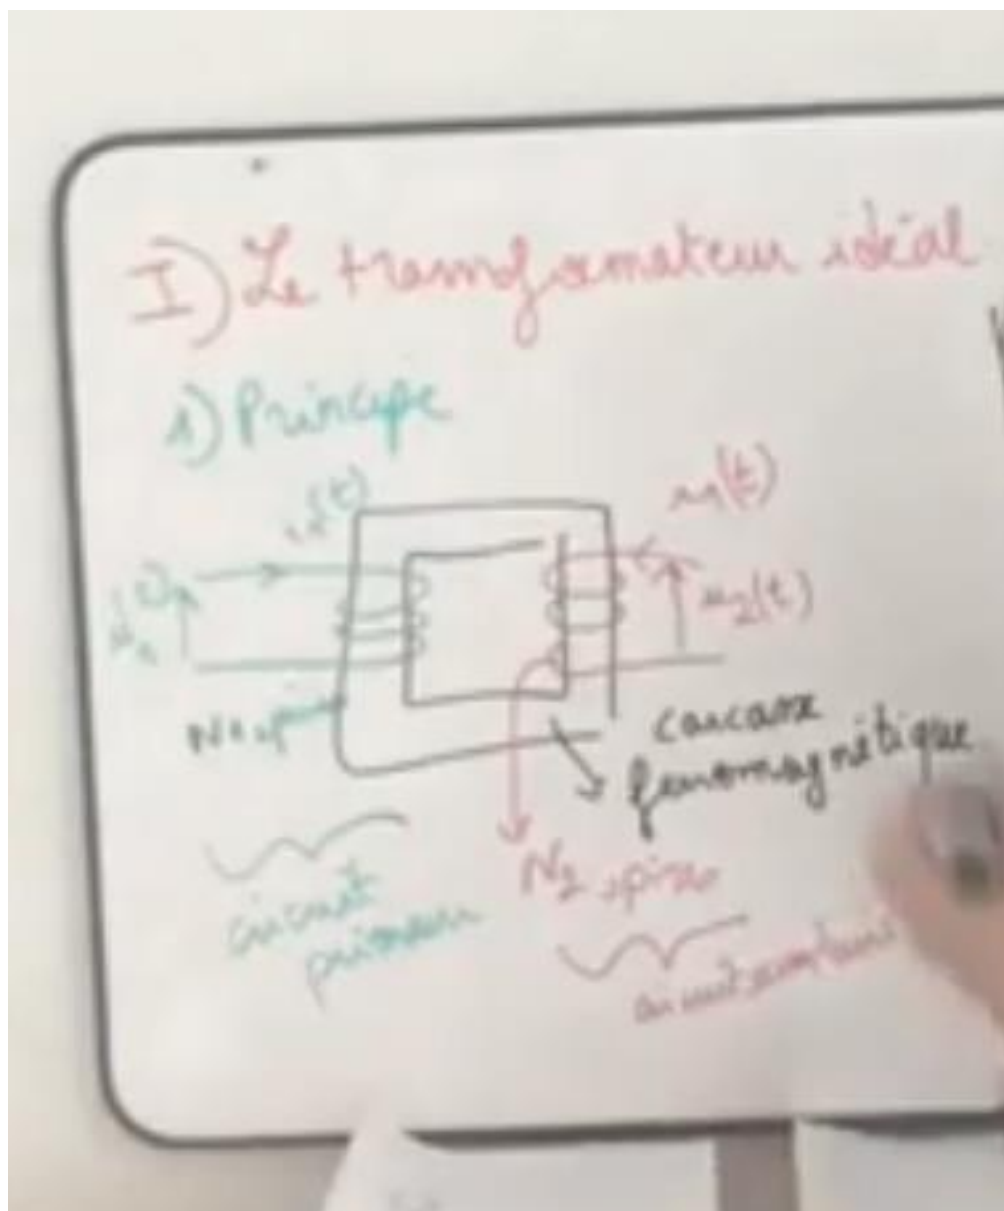 I) Le transformateur idéal
1) Principe
(t)
(t)
u2(t)
carcasse
ferromagnétique
N2 spires
circuit
primaire
circuit secondaire